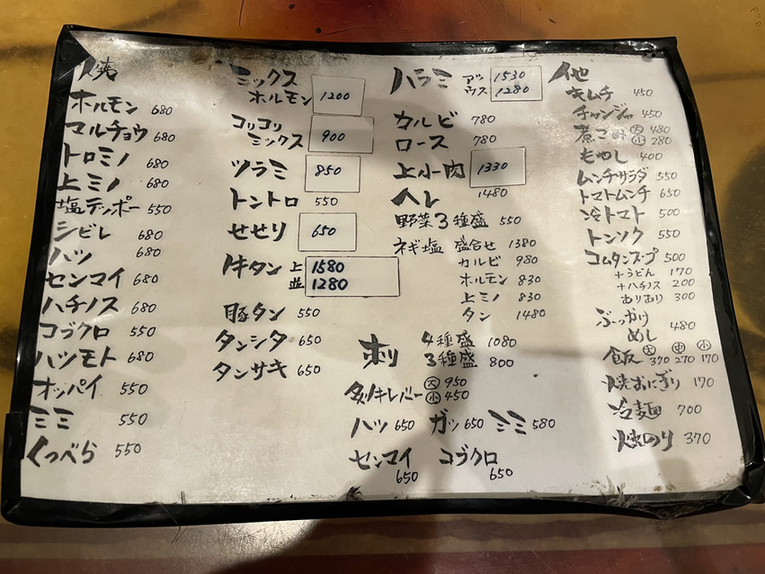 焼
ホルモン 680
マルチョウ 680
トロミノ 680
上ミノ 680
塩テッポー 550
シビレ 680
ハツ 680
センマイ 680
ハチノス 680
コブクロ 550
ハツモト 680
オッパイ 550
ミミ 550
くつべら 550
ミックス
ホルモン 1200
コリコリ
ミックス 900
ツラミ 850
トントロ 550
せせり 650
牛タン 上 1580
並 1280
豚タン 550
タンシタ 650
タンサキ 650
ハラミ アツ 1530
ウス 1280
カルビ 780
ロース 780
上小肉 1330
ヘレ 1480
野菜3種盛 550
ネギ塩 盛合せ 1380
カルビ 980
ホルモン 830
上ミノ 830
タン 1480
4種盛 1080
3種盛 800
レバー 大 950
小 450
ハツ 650 ガツ 650 ミミ 580
センマイ 650 コブクロ 650
他
キムチ 450
チャンジャ 450
大 480
小 280
もやし 400
ムンチサラダ 550
トマトムンチ 650
冷トマト 500
トンソク 550
コムタンスープ 500
+うどん 170
+ハチノス 200
300
ぶっかけ
めし 480
飯 大 370 中 270 小 170
焼おにぎり 170
冷麺 700
のり 370